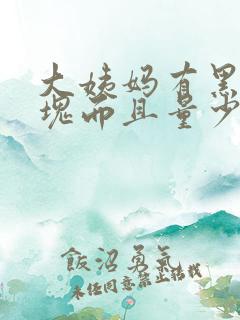 大姨妈有黑
块而且量少
飯沼勇氣
未经同意禁止转载